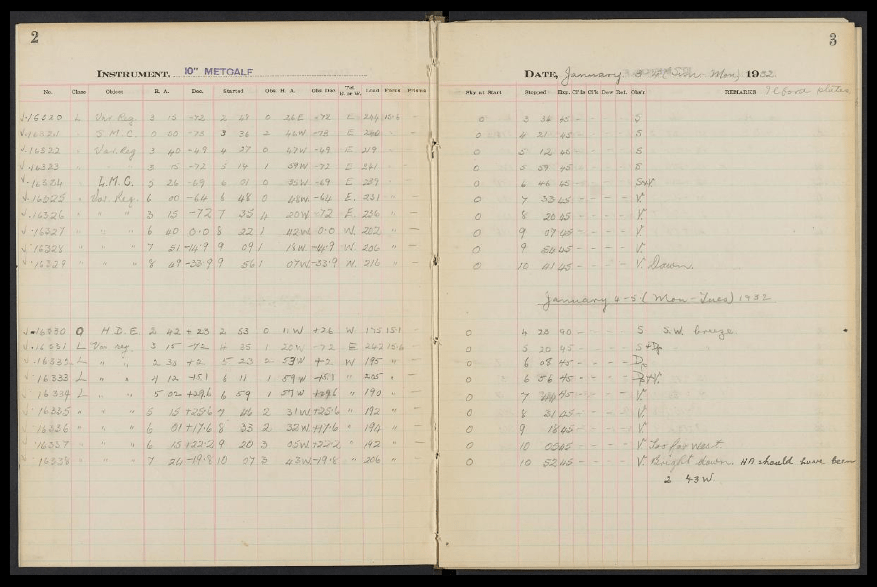 2
INSTRUMENT, 10" METCALF
No. Class Object R. A. Dec. Started Obs. H. A. Obs. Dec. Tel. E. or W. Load Focus Prisms
16320 L Var Reg. 3 15 -72 2 49 0 26E -72 E 244 15.6
S.M.C. 0 50 -73 3 36 2 46W -73 E 246
16322 " Var. Reg 3 40 -49 4 27 0 47W -49 E 219
16323 " " 3 15 -72 5 14 1 59W -72 E 241
16324 " L.M.C. 5 26 -69 6 01 0 35W -69 E 239
16325 " Var. Reg. 6 00 -64 6 48 0 48W -64 E. 231
16326 " " " 3 15 -72 7 35 4 20W -72 E 236 "
16327 " " " 6 40 0.0 8 22 1 42W 0.0 W. 202 "
16328 " " " 7 51 -44.9 9 09 1 18W -44.9 W. 236 "
16329 " " " 8 49 -33.9 9 56 1 07W -33.9 W. 216 "
16330 O H.D.E. 2 42 +23 2 53 0 11W +26 W. 175 15.1
16331 L Var reg. 3 15 -72 4 35 1 20W -72 E 242 15.6
16332 L " " 2 30 +2 5 23 2 53W +2 W 195 "
16333 L " " 4 12 +15.1 6 11 1 59W +15.1 " 205 "
16334 L " " 5 02 +29.6 6 59 1 57W +29.6 " 190 "
16335 " " " 5 15 +25.6 7 46 2 31W +25.6 " 192 "
16336 " " " 6 01 +17.6 8 33 2 32W +17.6 " 194 "
16337 " " " 6 15 +22.2 9 20 3 05W +22.2 " 142 "
16338 " " " 7 24 -19.8 10 07 3 43W -19.8 " 206 "
3
DATE, January 3-4 (Sun-Mon) 1932
Sky at Start Stopped Exp. Cl'ls Cl'k Dew Ref. Obs'r REMARKS Ilford plates
0 3 34 45 - - - - S
0 4 21 45 - - - - S
0 5 12 45 - - - - S
0 5 59 45 - - - - S
0 6 46 45 - - - - S+V.
0 7 33 45 - - - - V.
0 8 20 45 - - - - V.
0 9 07 45 - - - - V.
0 9 54 45 - - - - V.
0 10 41 45 - - - - V. Dawn.
January 4-5 (Mon-Tues) 1932
0 4 23 90 - - - - S S.W. breeze.
0 5 20 45 - - - - S+D
0 6 08 45 - - - - D
0 6 56 45 - - - -
0 7 44 45 - - - - V.
0 8 31 45 - - - - V.
0 9 18 45 - - - - V.
0 10 05 45 - - - - V. Too far west
0 10 52 45 - - - - V. Bright dawn HA should have been
2 43W.